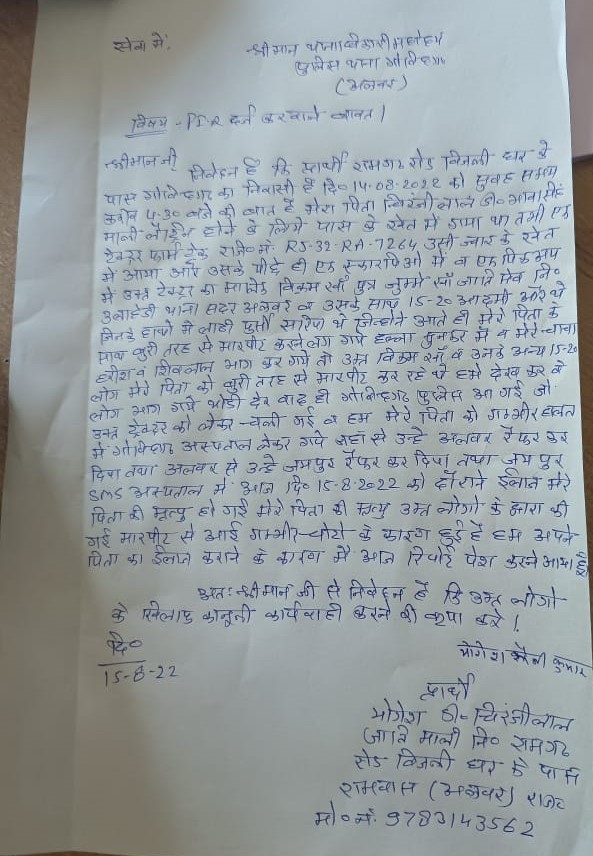 सेवा में,
श्रीमान थानाधिकारी महोदय
पुलिस थाना गोविन्दगढ
(अलवर)
विषय - FIR दर्ज करवाने बाबत।
श्रीमान जी
निवेदन है कि प्रार्थी रामगढ रोड बिजली घर के
पास गोविन्दगढ का निवासी है दि० 14-08-2022 को सुबह समय
करीब 4.30 बजे की बात है मेरा पिता चिरंजी लाल
माली लैट्रीन होने के लिये पास के खेत में गया था तभी एक
ट्रेक्टर फार्म ट्रेक रजि० नं. RJ-32-RA-7264 उसी ज्वार के खेत
में आया और उसके पीछे ही एक स्कारपिओ में व एक पिकअप
में उक्त ट्रेक्टर का मालिक विक्रम खाँ पुत्र जुम्मे खाँ जाति मेव नि०
उलाहेडी थाना सदर अलवर व उसके साथ 15-20 आदमी और थे
जिनके हाथो में लाठी फर्सी सरिया थे जिन्होने आते ही मेरे पिता के
साथ बुरी तरह से मारपीट करने लग गये हल्ला सुनकर मैं व मेरे चाचा
हरीश व शिवलाल भाग कर गये तो उक्त विक्रम खाँ व उनके अन्य 15-20
लोग मेरे पिता को बुरी तरह से मारपीट कर रहे थे हमे देख कर वे
लोग भाग गये थोडी देर बाद ही गोविन्दगढ पुलिस आ गई जो
उक्त ट्रेक्टर को लेकर चली गई व हम मेरे पिता को गम्भीर हालत
में गोविन्दगढ अस्पताल लेकर गये जहां से उन्हे अलवर रैफर कर
दिया तथा अलवर से उन्हे जयपुर रैफर कर दिया तथा जयपुर
SMS अस्पताल में आज दि० 15-8-2022 को दौराने ईलाज मेरे
पिता की मृत्यु हो गई मेरे पिता की मृत्यु उक्त लोगो के द्वारा की
गई मारपीट से आई गम्भीर चोटो के कारण हुई है हम अपने
पिता का ईलाज कराने के कारण मैं आज रिपोर्ट पेश करने आया हूँ
अतः श्रीमान जी से निवेदन है कि उक्त लोगो
के खिलाफ कानूनी कार्यवाही करने की कृपा करे।
दि०
15-8-22
योगेश कुमार
प्रार्थी
योगेश चिरंजीलाल
जाति माली नि० रामगढ
रोड बिजली घर के पास
रामबास (अलवर) राज०
मो० नं. 9783143562